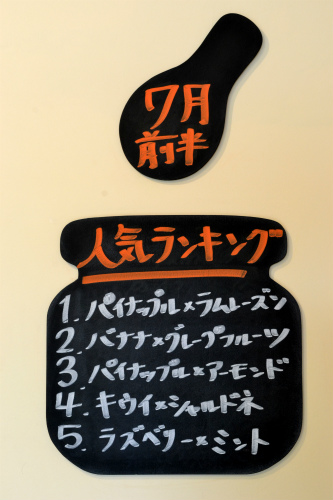 7月
前半
人気ランキング
1. パイナップル×ラムレーズン
2. バナナ×グレープフルーツ
3. パイナップル×アーモンド
4. キウイ×シャルドネ
5. ラズベリー×ミント